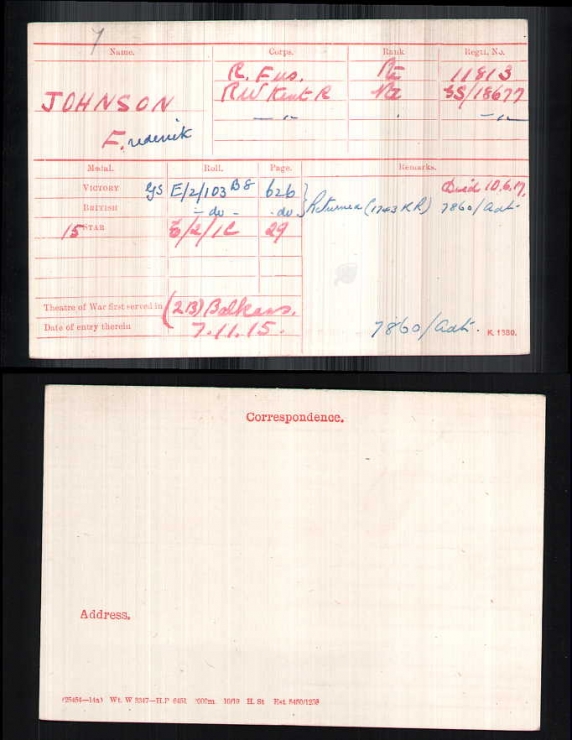 Name. Corps. Rank. Regtl. No.
JOHNSON R. Fus. Pte 11813
R W Kent R Pte GS/18677
Frederick — " — — " —
Medal. Roll. Page. Remarks.
VICTORY GS E/2/103 B8 626 Died 10.6.17.
BRITISH - do - - do - Returned (1743 KR) 7860/Adt.
15 STAR E/2/1C 29
Theatre of War first served in (2B) Balkans.
Date of entry therein 7.11.15. 7860/Adt. K. 1380.
Correspondence.
Address.
Wt. W 5347—H.P. H. St